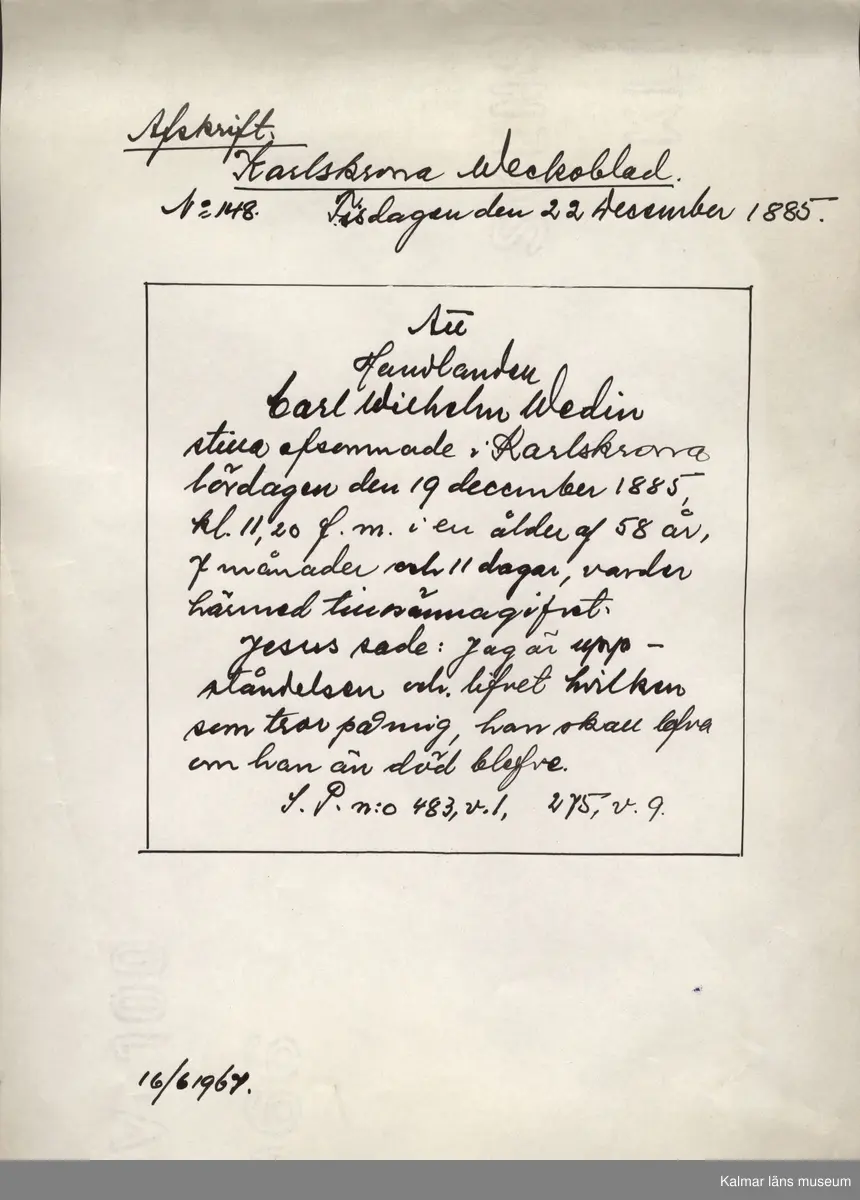 Afskrift:
Karlskrona Weckoblad.
No 148. Tisdagen den 22 December 1885.
Att
Handlanden
Carl Wilhelm Wedin
stilla afsomnade i Karlskrona
lördagen den 19 december 1885,
kl. 11,20 f.m. i en ålder af 58 år,
7 månader och 11 dagar, varder
härmed tillkännagifvet.
Jesus sade: Jag är upp-
ståndelsen och lifvet hvilken
som tror på mig, han skall lefva
om han än död blefve.
S. P. n:o 483, v. 1, 275, v. 9.
16/6 1967.
Kalmar läns museum